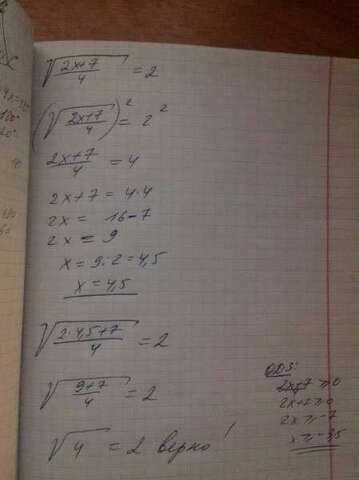 √((2x+7)/4) = 2
(√((2x+7)/4))² = 2²
(2x+7)/4 = 4
2x+7 = 4·4
2x = 16-7
2x = 9
x = 9:2 = 4,5
x = 4,5
√((2·4,5+7)/4) = 2
√((9+7)/4) = 2
√4 = 2 верно!
ОДЗ:
2x+7 ≥ 0
2x ≥ -7
x ≥ -3,5